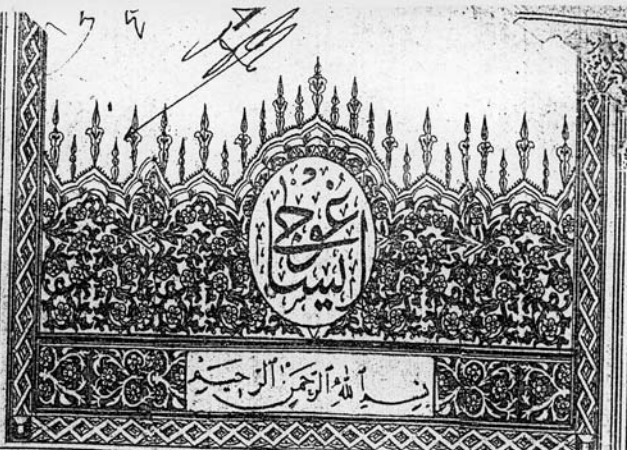 ايساغوجي
بسم الله الرحمن الرحيم